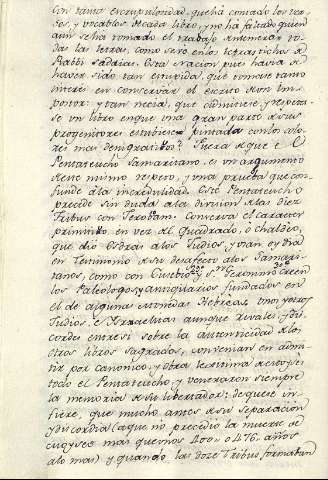 con tanta escrupulosidad, que há contado los ver
sos, y vocablos decada libro, y nó há faltado quien
aun se há tomado el trabajo de numerar to
das las letras, como se vé en los tetrasticos de
Rabbi Sàdaica. Esta Nacion pues havia de
haver sido tan estupida, que tomase tanto
interes en conservar el escrito de un Im
postor: y tan necia, que admitiese, y respeta
se un libro en que una gran parte de sus
progenitores estubiese pintada con los colo
res mas denigrativos? Fuera deque el
Pentateucho Samaritano, es un argumento
de este mismo respeto, y una prueba que con
funde ála incredulidad. Este Pentateucho
precede sin duda ála division de las diez
Tribus con Jeroboam. Conserva el caracter
primitivo en vez del Quadrado, ò chaldeo,
que dio Esdras alos Judios, y usan oy dia
en testimonio de su desafecto alos Samari
tanos, como con Eusebio, y S. Geronimo creen
los Paleologos, y antiquarios fundados en
el de algunas monedas Hebreas. Unos, y otros
Judios, è Israelitas aunque rivales, y dis
cordes entre si sobre la autenticidad de los
otros libros sagrados, convenian en admi
tir por canonico, y obra legitima de Moyses
todo el Pentateucho, y veneraron siempre
la memoria de su libertador: de que se in
fiere, que mucho antes de su separacion
y discordia (a que no precedio la muerte de
Moyses mas que unos 400 ò 476 años
alo mas) y quando las doze Tribus formaban